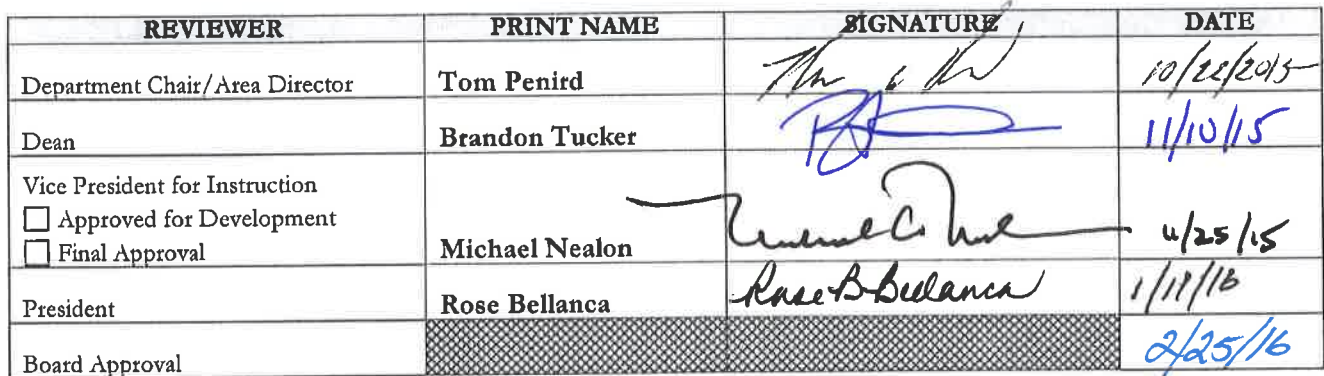 REVIEWER PRINT NAME SIGNATURE DATE
Department Chair/Area Director Tom Penird 10/22/2015
Dean Brandon Tucker 11/10/15
Vice President for Instruction
Approved for Development
Final Approval Michael Nealon 11/25/15
President Rose Bellanca Rose B. Bellanca
Board Approval 2/25/16